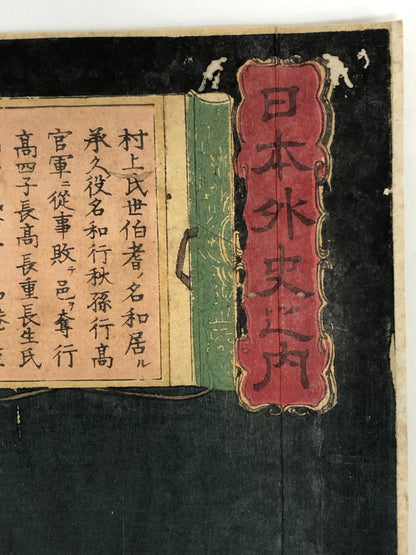 日本外史之内
村上氏世伯耆ノ名和居ル
承久役名和行秋孫行高
官軍ニ從事敗テ邑ヲ奪行
高四子長高長重長生氏